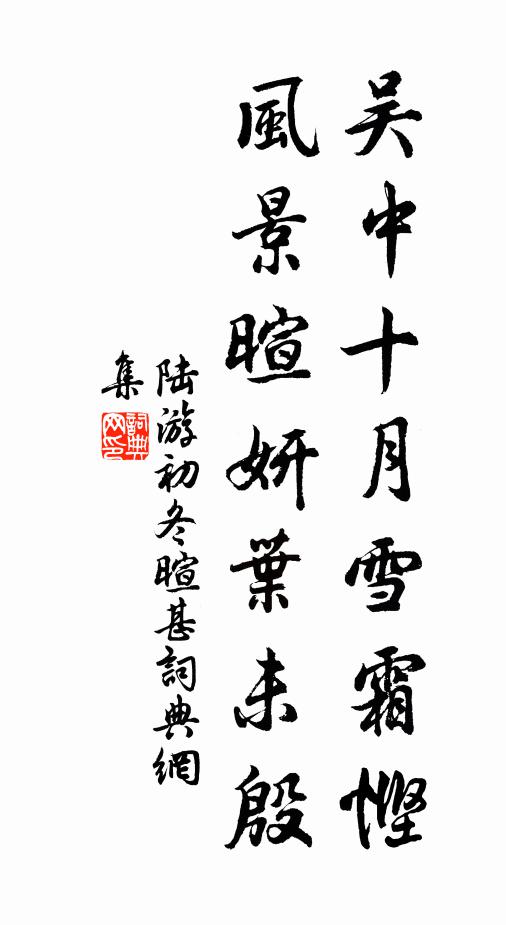 吴中十月雪霜慳
風景暄妍葉未殷
陸游初冬暄甚詞典網
集
詞典
网印